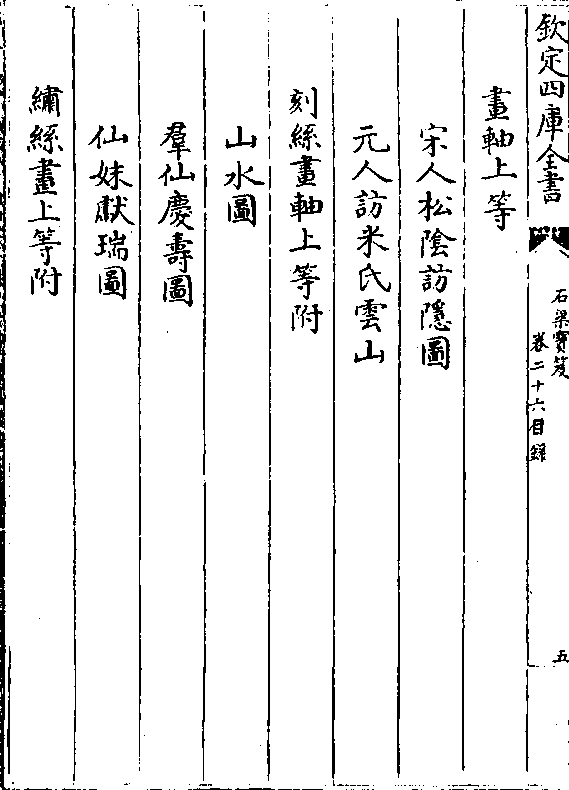 欽定四庫全書
石渠寶笈
卷二十六目録
五
畫軸上等
宋人松陰訪隱圖
元人訪米氏雲山
刻絲畫軸上等附
山水圖
羣仙慶壽圖
仙妹獻瑞圖
繡絲畫上等附